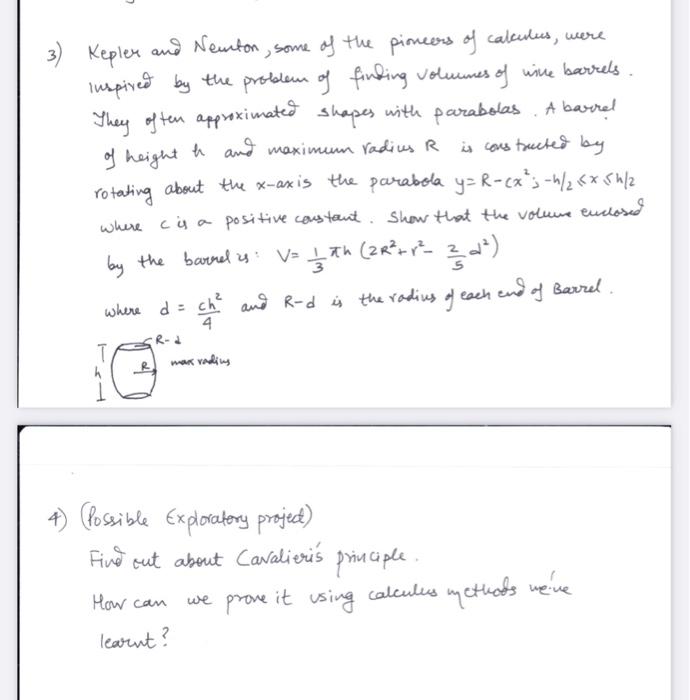 3) Kepler and Newton, some of the pioneers of calculus, were
inspired by the problem of finding volumes of wine barrels.
They often approximated shapes with parabolas. A barrel
of height h and maximum radius R is constructed by
rotating about the x-axis the parabola y=R-cx²; -h/2≤x≤h/2
where c is a positive constant. Show that the volume enclosed
by the barrel is: V= 1/3 πh (2R²+r²- 2/5 d²)
where d = ch²/4 and R-d is the radius of each end of Barrel.
R-d
h
R max radius
4) (Possible Exploratory project)
Find out about Cavalieri's principle.
How can we prove it using calculus methods we've
learnt?